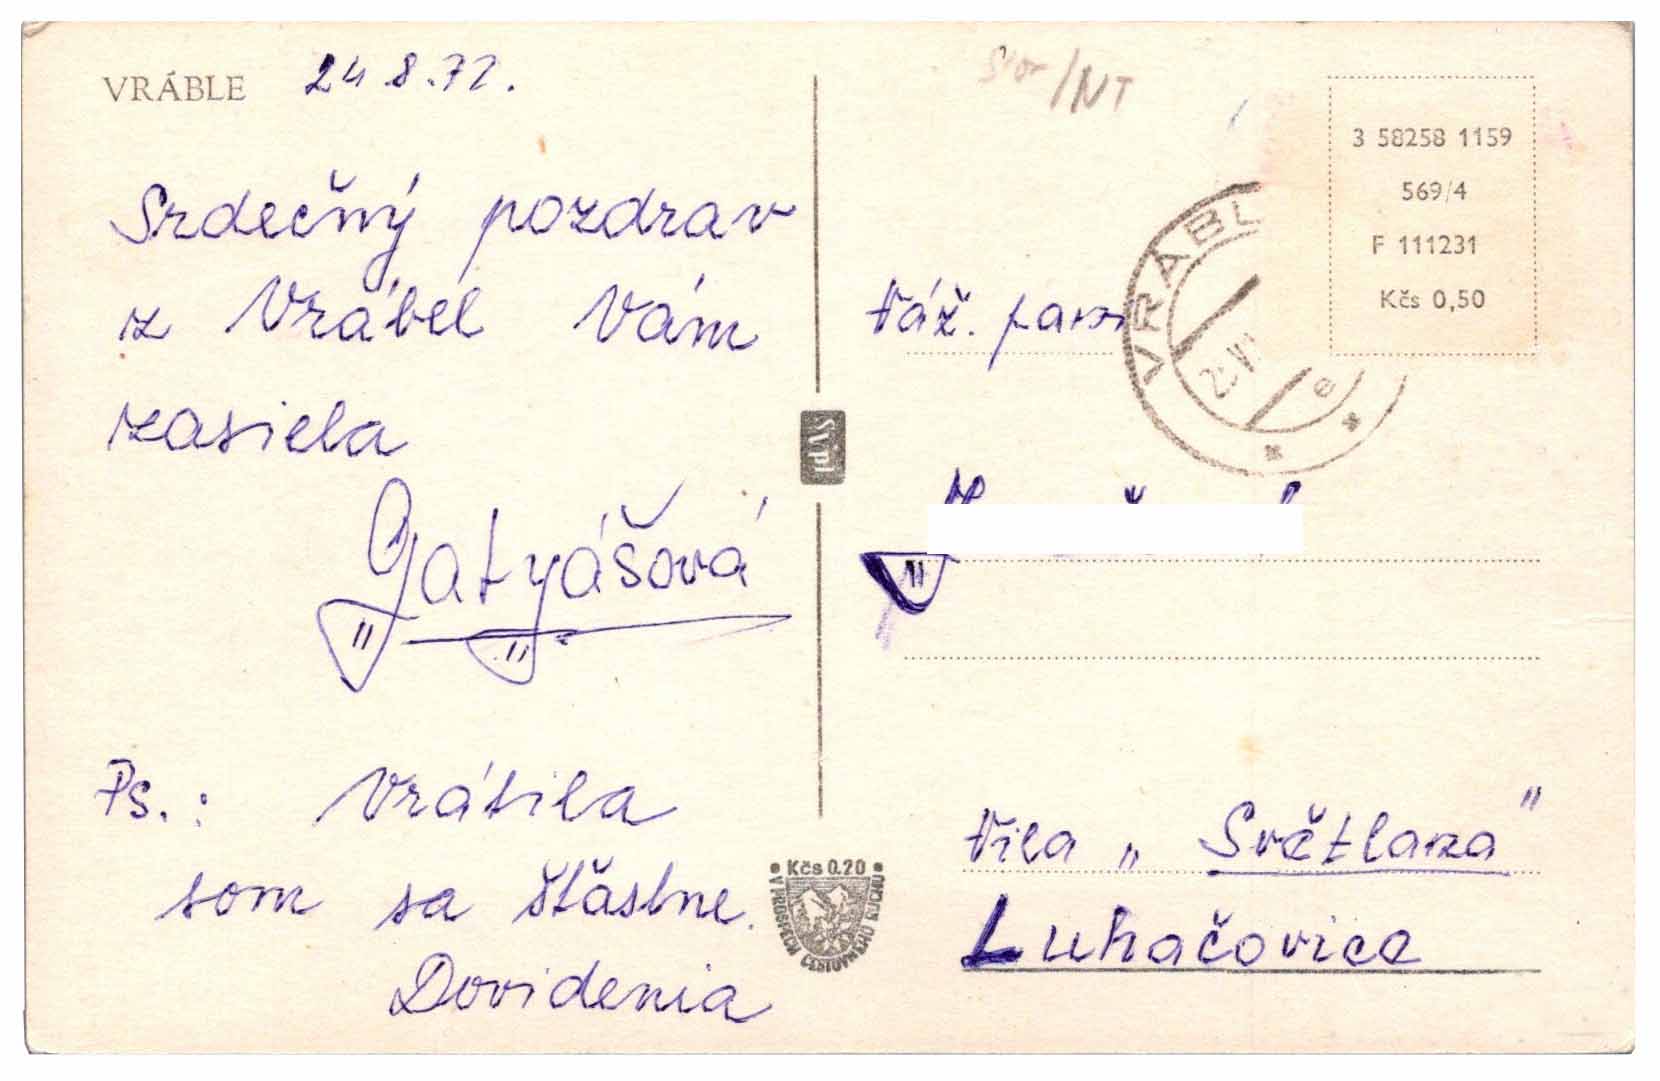 VRÁBLE 24 8.72.
Srdečný pozdrav
z Vrábel Vám
zasiela
Gatyášová
Ps.: Vrátila
som sa šťastne.
Dovidenia
Svipl
• Kčs 0.20 •
V PROSPECH CESTOVNÉHO RUCHU
/NT
3 58258 1159
569/4
F 111231
Kčs 0,50
VRÁBL
e
Váž. pani
Vila „ Světlana "
Luhačovice